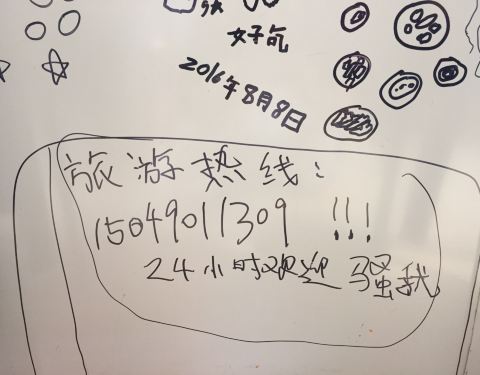 好气
2016年8月8日
旅游热线:
15049011309 !!!
24小时欢迎骚我